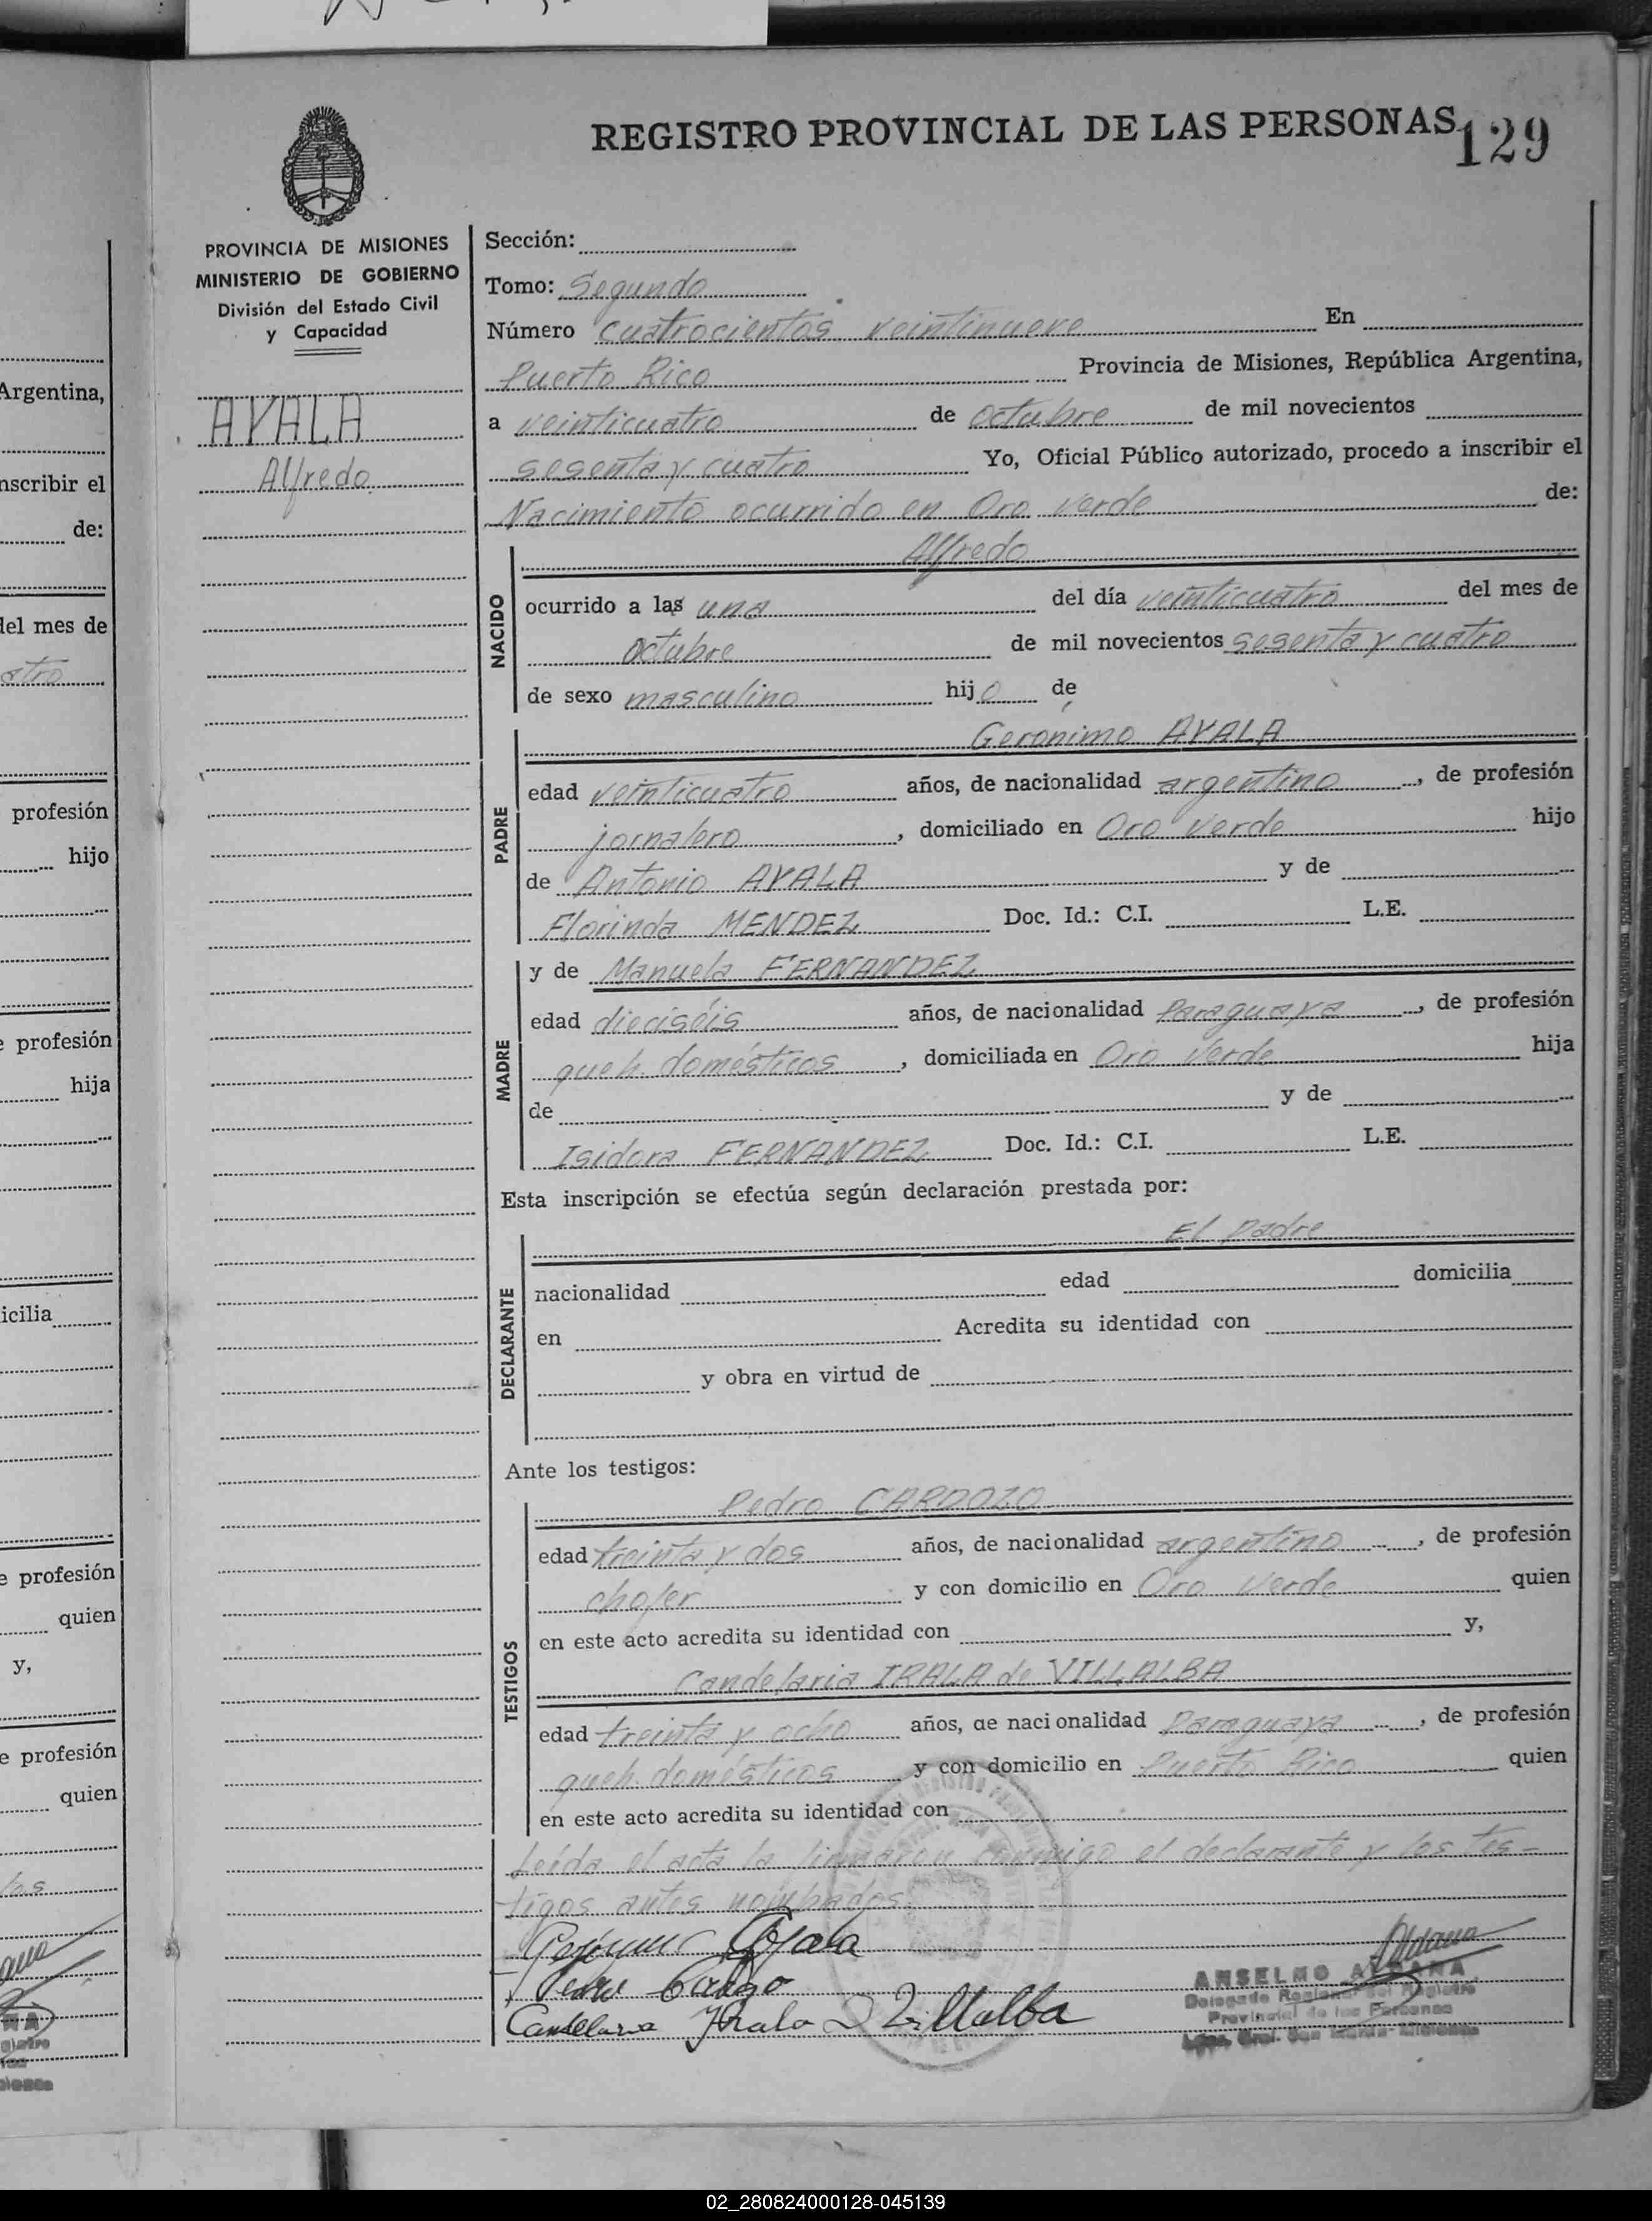 REGISTRO PROVINCIAL DE LAS PERSONAS
129
PROVINCIA DE MISIONES
MINISTERIO DE GOBIERNO
División del Estado Civil
y Capacidad
AYALA
Alfredo
Sección:
Tomo: Segundo
Número cuatrocientos veintinueve En
Puerto Rico Provincia de Misiones, República Argentina,
a veinticuatro de octubre de mil novecientos
sesenta y cuatro Yo, Oficial Público autorizado, procedo a inscribir el
Nacimiento ocurrido en Oro Verde de:
NACIDO
Alfredo
ocurrido a las una del día veinticuatro del mes de
Octubre de mil novecientos sesenta y cuatro
de sexo masculino hijo de
PADRE
Geronimo AYALA
edad veinticuatro años, de nacionalidad argentino, de profesión
jornalero, domiciliado en Oro Verde hijo
de Antonio AYALA y de
Florinda MENDEZ Doc. Id.: C.I. L.E.
MADRE
y de Manuela FERNANDEZ
edad dieciséis años, de nacionalidad Paraguaya, de profesión
queh. domésticos, domiciliada en Oro Verde hija
de y de
Isidora FERNANDEZ Doc. Id.: C.I. L.E.
Esta inscripción se efectúa según declaración prestada por:
DECLARANTE
El padre
nacionalidad edad domicilia
en Acredita su identidad con
y obra en virtud de
Ante los testigos:
TESTIGOS
Pedro CARDOZO
edad treinta y dos años, de nacionalidad argentino, de profesión
chofer y con domicilio en Oro Verde quien
en este acto acredita su identidad con y,
Candelaria IRALA de VILLALBA
edad treinta y ocho años, de nacionalidad Paraguaya, de profesión
queh. domésticos y con domicilio en Puerto Rico quien
en este acto acredita su identidad con
Leída el acta la firmaron conmigo el declarante y los tes-
tigos antes nombrados.
Ayala
Candelaria Yrala D Villalba
Aldana
ANSELMO ALDANA
Delegado Regional del Registro
Provincial de las Personas
Lgen. Gral. San Martín-Misiones
Argentina,
inscribir el
de:
del mes de
profesión
hijo
profesión
hija
icilia
e profesión
quien
y,
e profesión
quien
02_280824000128-045139